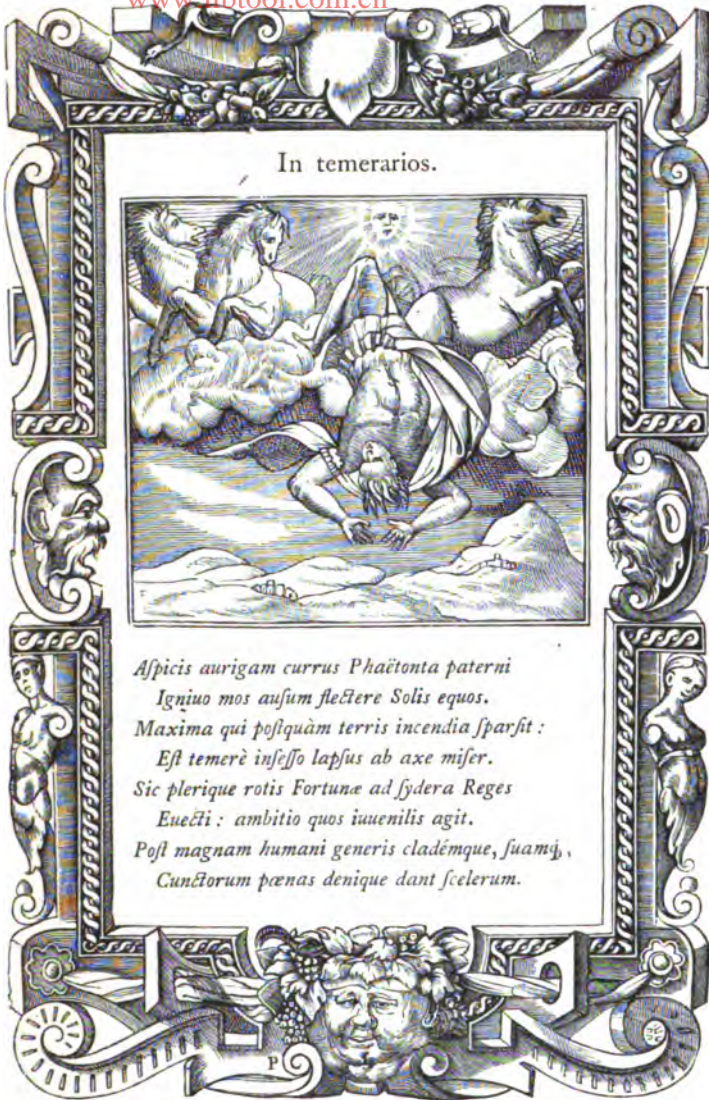 www.libtool.com.cn
In temerarios.
Aſpicis aurigam currus Phaëtonta paterni
Igniuo mos auſum flectere Solis equos.
Maxima qui poſtquàm terris incendia ſparſit :
Eſt temerè inſeſſo lapſus ab axe miſer.
Sic plerique rotis Fortunæ ad ſydera Reges
Euecti : ambitio quos iuuenilis agit.
Poſt magnam humani generis cladémque, ſuamq́;,
Cunctorum pœnas denique dant ſcelerum.
P